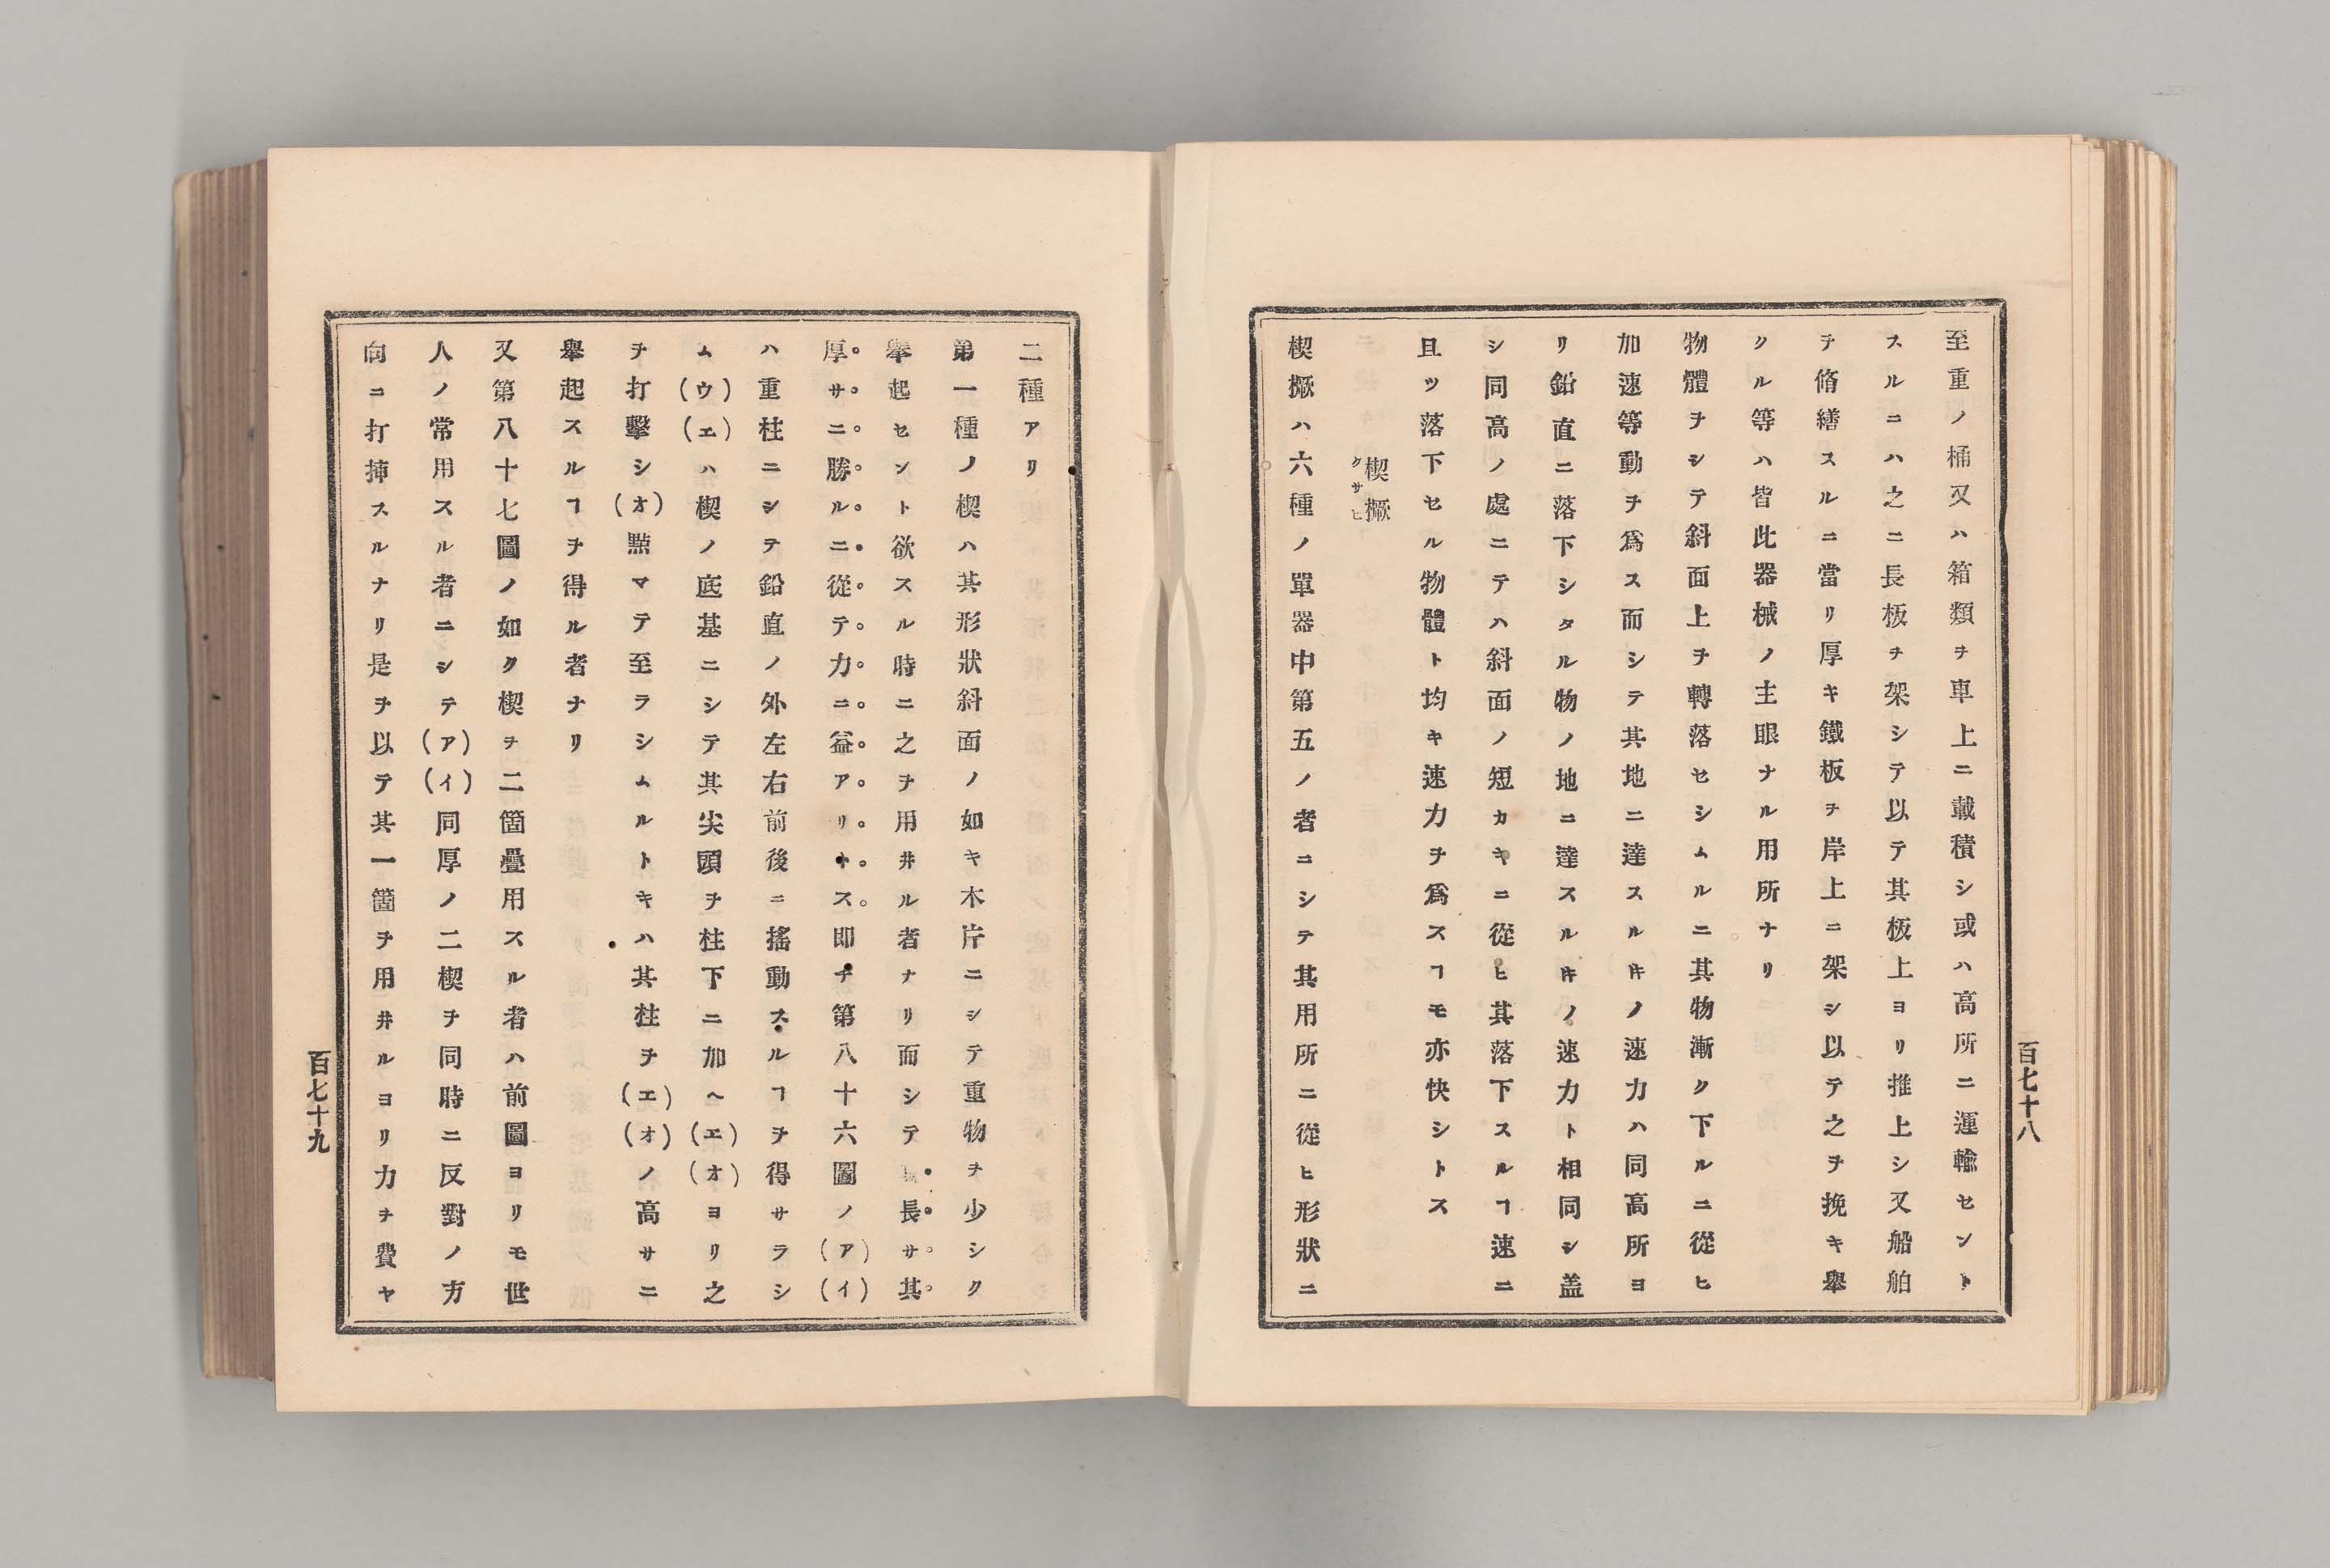 至重ノ桶又ハ箱類ヲ車上ニ載積シ或ハ高所ニ運輸セント
スルニハ之ニ長板ヲ架シテ以テ其板上ヨリ推上シ又船舶
ヲ脩繕スルニ當リ厚キ鐵板ヲ岸上ニ架シ以テ之ヲ挽キ舉
クル等ハ皆此器械ノ主眼ナル用所ナリ
物體ヲシテ斜面上ヲ轉落セシムルニ其物漸ク下ルニ從ヒ
加速等動ヲ爲ス而シテ其地ニ達スルキノ速力ハ同高所ヨ
リ鉛直ニ落下シタル物ノ地ニ達スルキノ速力ト相同シ盖
シ同高ノ處ニテハ斜面ノ短カキニ從ヒ其落下スルヿ速ニ
且ツ落下セル物體ト均キ速力ヲ爲スヿモ亦快シトス
楔橛
クサヒ
楔橛ハ六種ノ單器中第五ノ者ニシテ其用所ニ從ヒ形狀ニ
百七十八
二種アリ
第一種ノ楔ハ其形狀斜面ノ如キ木片ニシテ重物ヲ少シク
舉起セント欲スル時ニ之ヲ用井ル者ナリ而シテ長サ其
厚サニ勝ルニ從テ力ニ益アリトス即チ第八十六圖ノ(ア)(イ)
ハ重柱ニシテ鉛直ノ外左右前後ニ搖動スルヿヲ得サラシ
ム(ウ)(エ)ハ楔ノ底基ニシテ其尖頭ヲ柱下ニ加ヘ(エ)(オ)ヨリ之
ヲ打擊シ(オ)點マテ至ラシムルトキハ其柱ヲ(エ)(オ)ノ高サニ
舉起スルヿヲ得ル者ナリ
又第八十七圖ノ如ク楔ヲ二箇疊用スル者ハ前圖ヨリモ世
人ノ常用スル者ニシテ(ア)(イ)同厚ノ二楔ヲ同時ニ反對ノ方
向ニ打揷スルナリ是ヲ以テ其一箇ヲ用井ルヨリ力ヲ費ヤ
百七十九